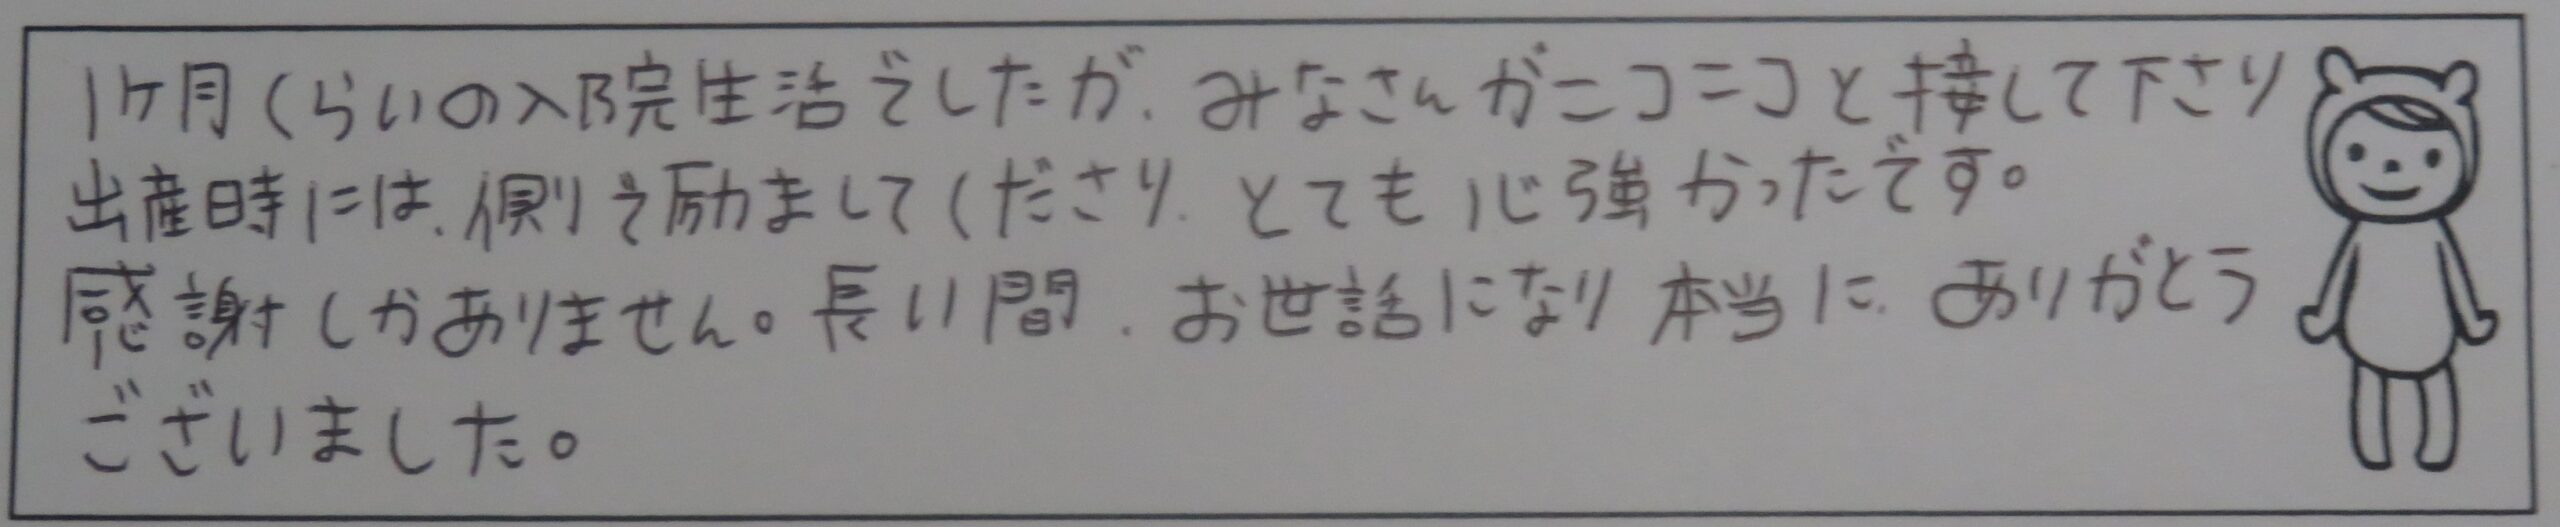 1ヶ月くらいの入院生活でしたが、みなさんがニコニコと接して下さり
出産時には、側で励ましてくださり、とても心強かったです。
感謝しかありません。長い間、お世話になり本当に、ありがとう
ございました。